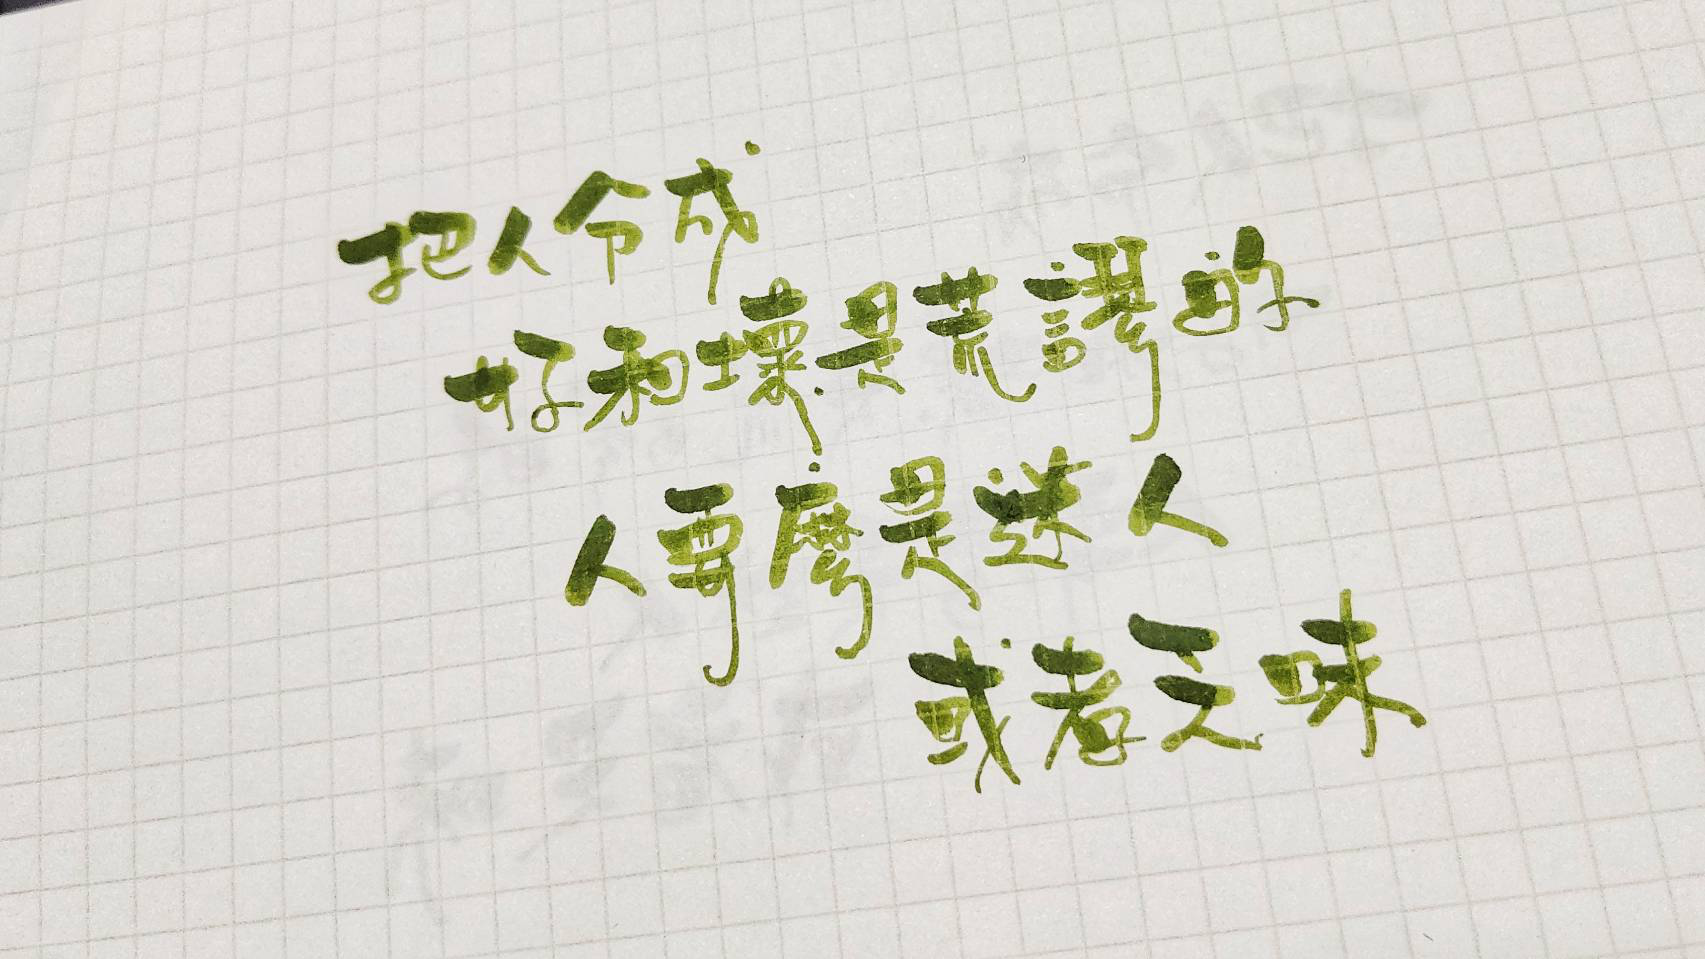 把人分成
好和壞是荒謬的
人要麼是迷人
或者乏味